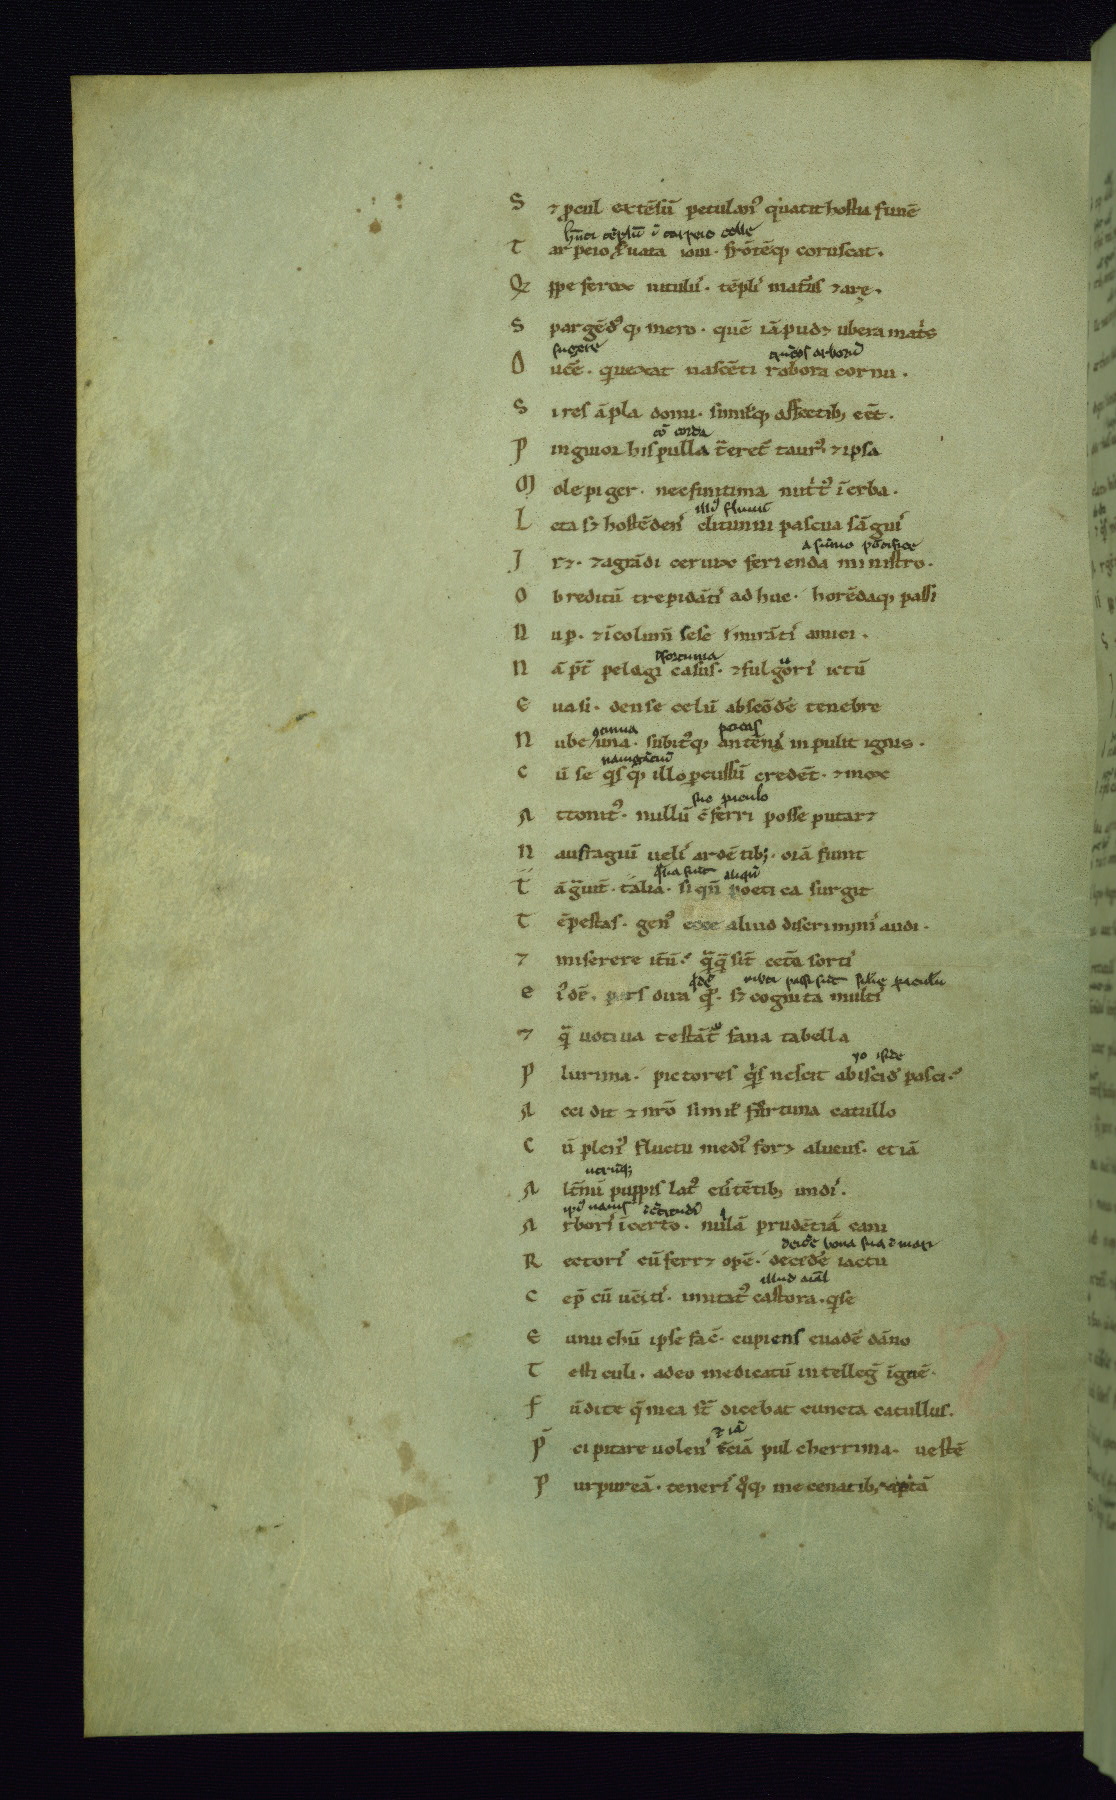 S & ꝓcul extēsū petulanꝰ quatit hostia funē
hn̄t tēplū ī tarpeio colle
T arpeio ſꝰuata ioui· frōtēq; coruscat.
Q ppe ferox uitulꝰ· tēpli maturꝰ & arę.
S pargēdꝰq; mero· quē iā pud& ubera matris
sugere trūcos arborū
D ucē· qui uexat nascēti robora cornu.
S i res āpla domi· similisq; affectib; eēt.
P inguior hispulla t̄heret̄ taurꝰ & ipsa
M ole piger· nec finitima nutritꝰ ī erba.
illiꝰ fluuii
L eta s; hostēdens clitumni pascua sāguis
a sūmo pōtifice
I r&· & a grādi ceruix ferienda ministro.
O b reditū trepidātis ad huc· horēdaq; passi
N up̄· & īcolumē sese mirātis amici.
infortunia
N ā p̄t̄ pelagi casus· & fulguris ictū
E uasi· dense celū abscōdē tenebre
N ube una· subitꝰq; antēnas inpulit ignis.
C ū se quisq; illo ꝑcussū credēt· & mox
suo periculo
A ttonitꝰ· nullū cōferri posse putar&
N aufragiū uelis ardētib;· oīa fiunt
T ā grauit̄· talia· si qn̄ poetica surgit
T ēpestas· genꝰ ecce aliud discriminis audi.
& miserere it̄ū· q̄q̄ sīt cetera sortis
E iꝰdē· pars dira qdē· s; cognita multis
& q̄ uotiua testāt̄ fana tabella
P lurima· pictores quis nescit ab iside pasci·
A ccidit & nr̄o similis fortuna catullo
C ū plenꝰ fluctu mediꝰ for& alueus· et iā
utrūq;
A lt̄nū puppis latꝰ euertētib; undis.
A rboris īcerto· nullā prudētia cani
R ectoris cū ferr& opē· decidē iactu
illud aīal
C ep̄ cū uētis· imitatꝰ castora· q̄ se
E unuchū ipse facit· cupiens euadē dāno
T esticuli· adeo medicatū intellegit īguē·
F ūdite q̄ mea st̄ dicebat cuncta catullus.
P̄ cipitare uolens etiā pulcherrima· uestē
P urpureā· teneris qꝗ; mecenatib; aptā